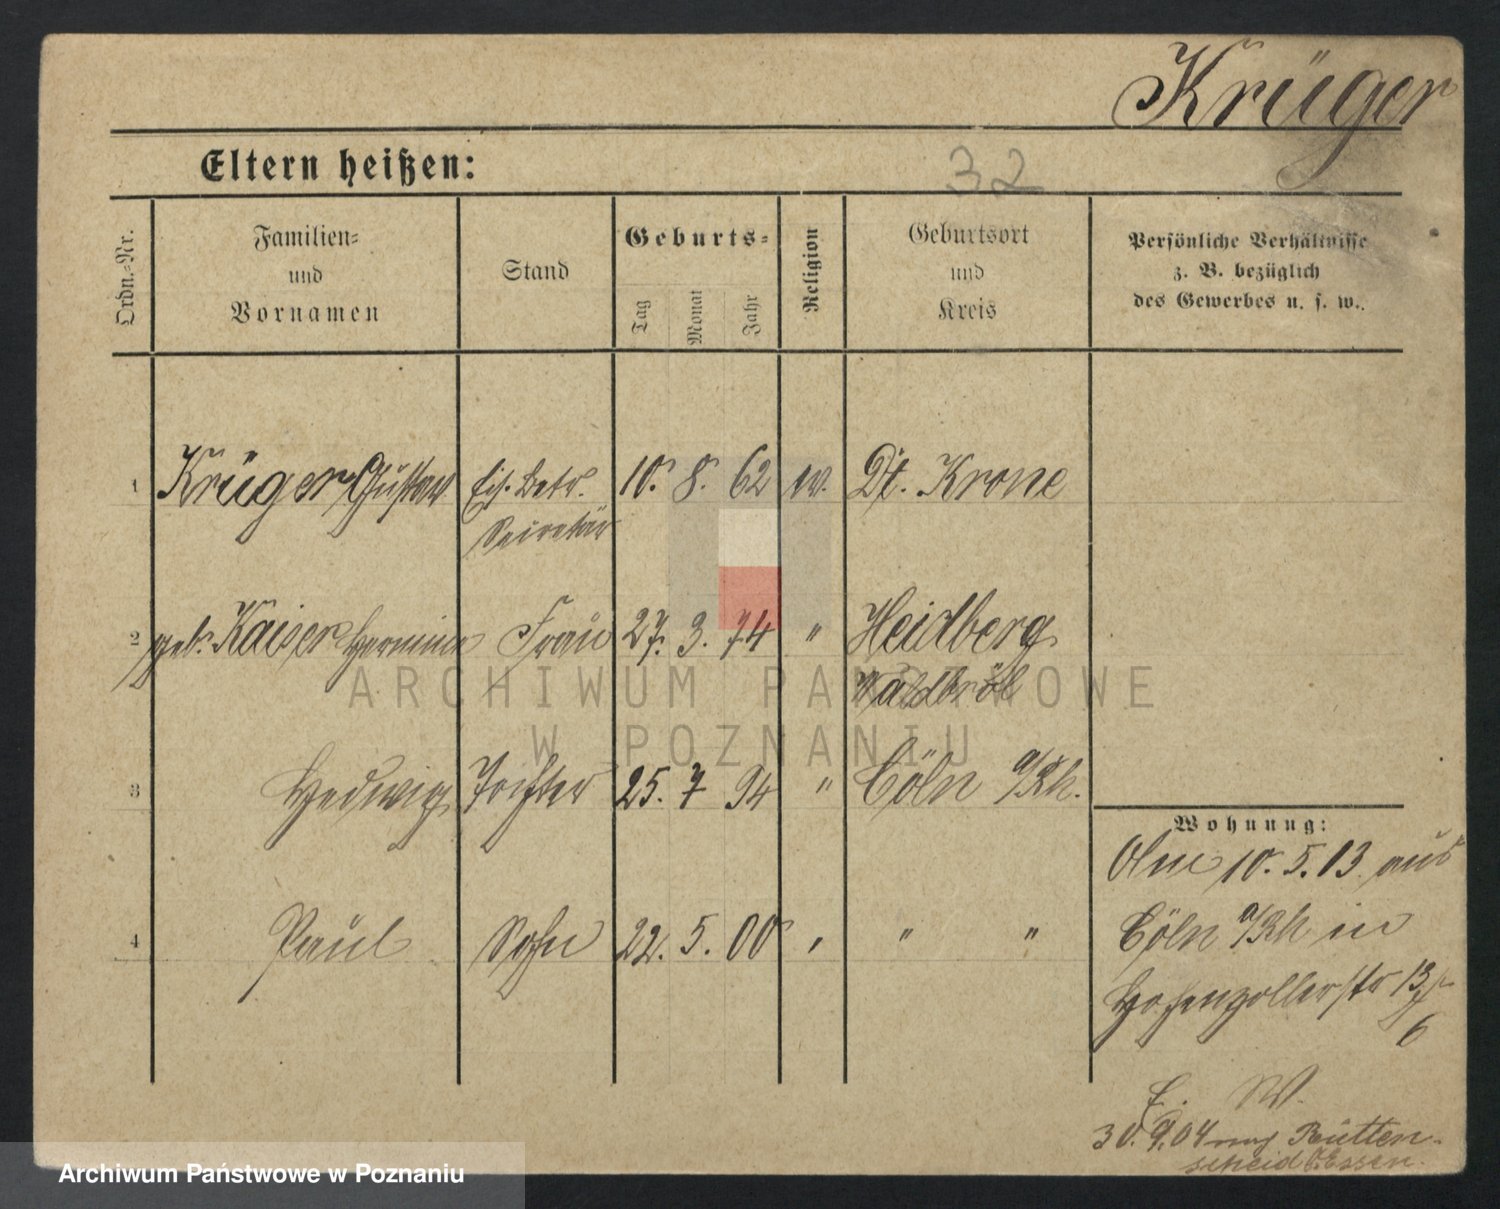 Krüger
Eltern heißen:
32
Ordn.-Nr.
Familien-
und
Vornamen
Stand
Geburts-
Tag
Monat
Jahr
Religion
Geburtsort
und
Kreis
Persönliche Verhältnisse
z. B. bezüglich
des Gewerbes u. s. w.
1 Krüger Gustav Eis. Betr. 10. 8. 62 ev. Dt. Krone
Secretär
2 geb. Kaiser Hermine Frau 27. 3. 74 " Heidberg
Waldbröl
3 Hedwig Tochter 25. 7 94 " Cöln a/Rh.
4 Paul Sohn 22. 5. 00 " " "
Wohnung:
10. 5. 03 aus
Cöln a/Rh in
Hohenzollerstr
6
E. W.
30. 9. 04 nach Rütten-
scheid b. Essen.
ARCHIWUM PAŃSTWOWE
W POZNANIU
Archiwum Państwowe w Poznaniu